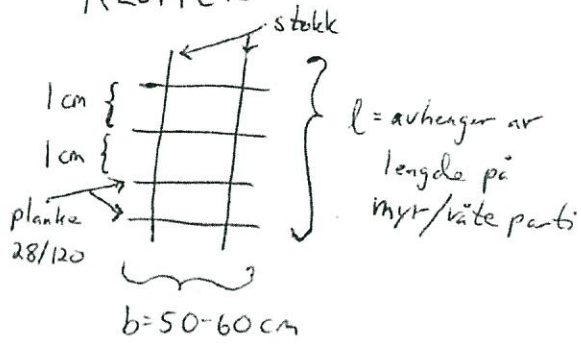 stokk
1 cm {
1 cm {
planke
28/120
l = avhenger av
lengde på
myr/våte parti
b=50-60 cm